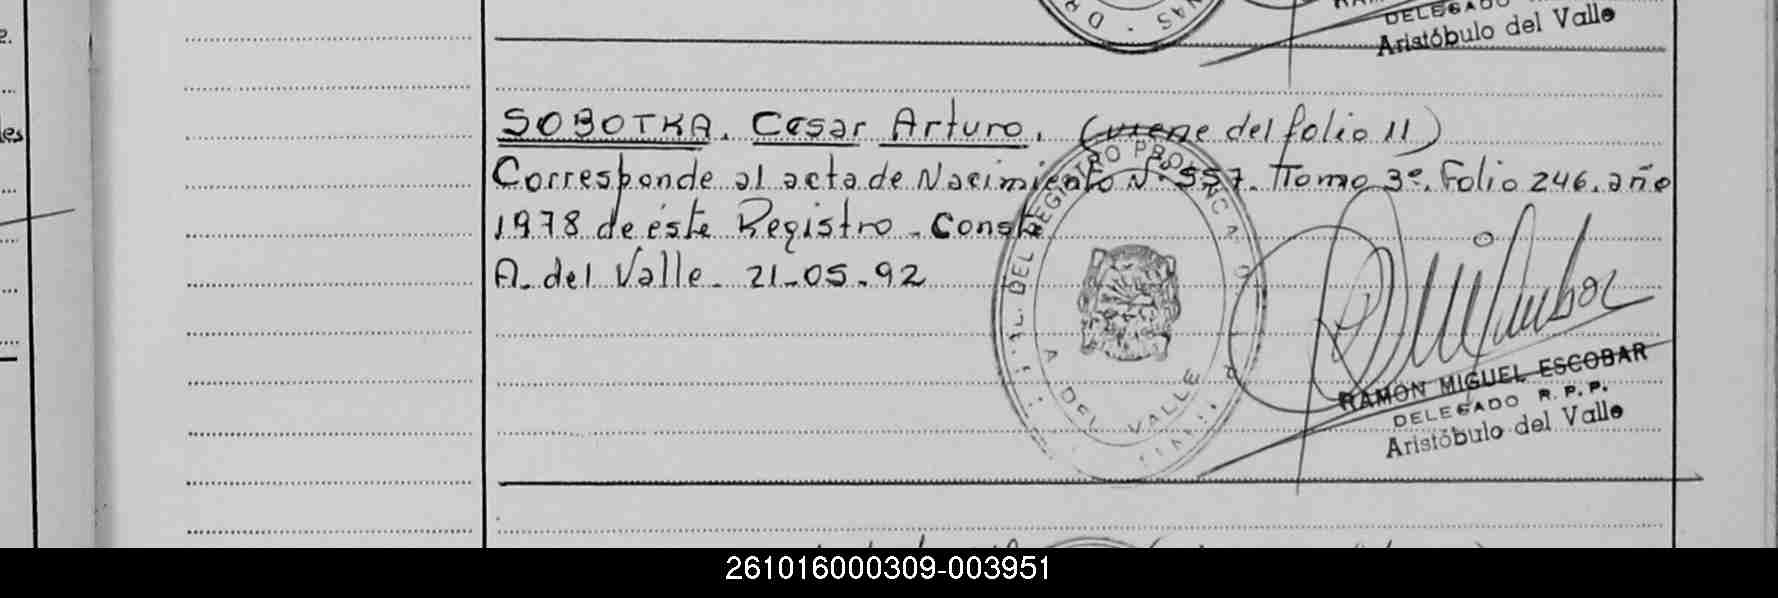 DELEGADO
Aristóbulo del Valle
e.
les
SOBOTKA. Cesar Arturo. (viene del folio 11)
Corresponde al acta de Nacimiento Nº 557. Tomo 3º. Folio 246. año
1978 de éste Registro. Conste
A. del Valle. 21-05-92
DEL REGISTRO PROVINC
A DEL VALLE
RAMON MIGUEL ESCOBAR
DELEGADO R.P.P.
Aristóbulo del Valle
261016000309-003951